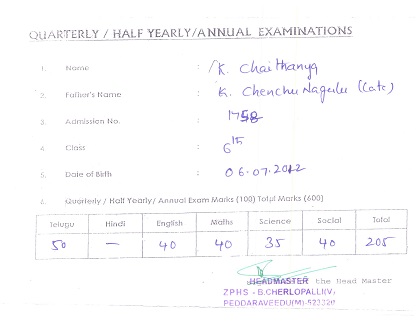 QUARTERLY / HALF YEARLY/ANNUAL EXAMINATIONS
1. Name : K. Chaithanya
2. Father's Name : K. Chenchu Nagulu (Late)
3. Admission No. : 1758
4. Class : 6th
5. Date of Birth : 06.07.2012
6. Quarterly / Half Yearly/ Annual Exam Marks (100) Total Marks (600)
Telugu Hindi English Maths Science Social Total
50 — 40 40 35 40 205
HEADMASTER the Head Master
ZPHS - B.CHERLOPALLI(V)
PEDDARAVEEDU(M)-523320